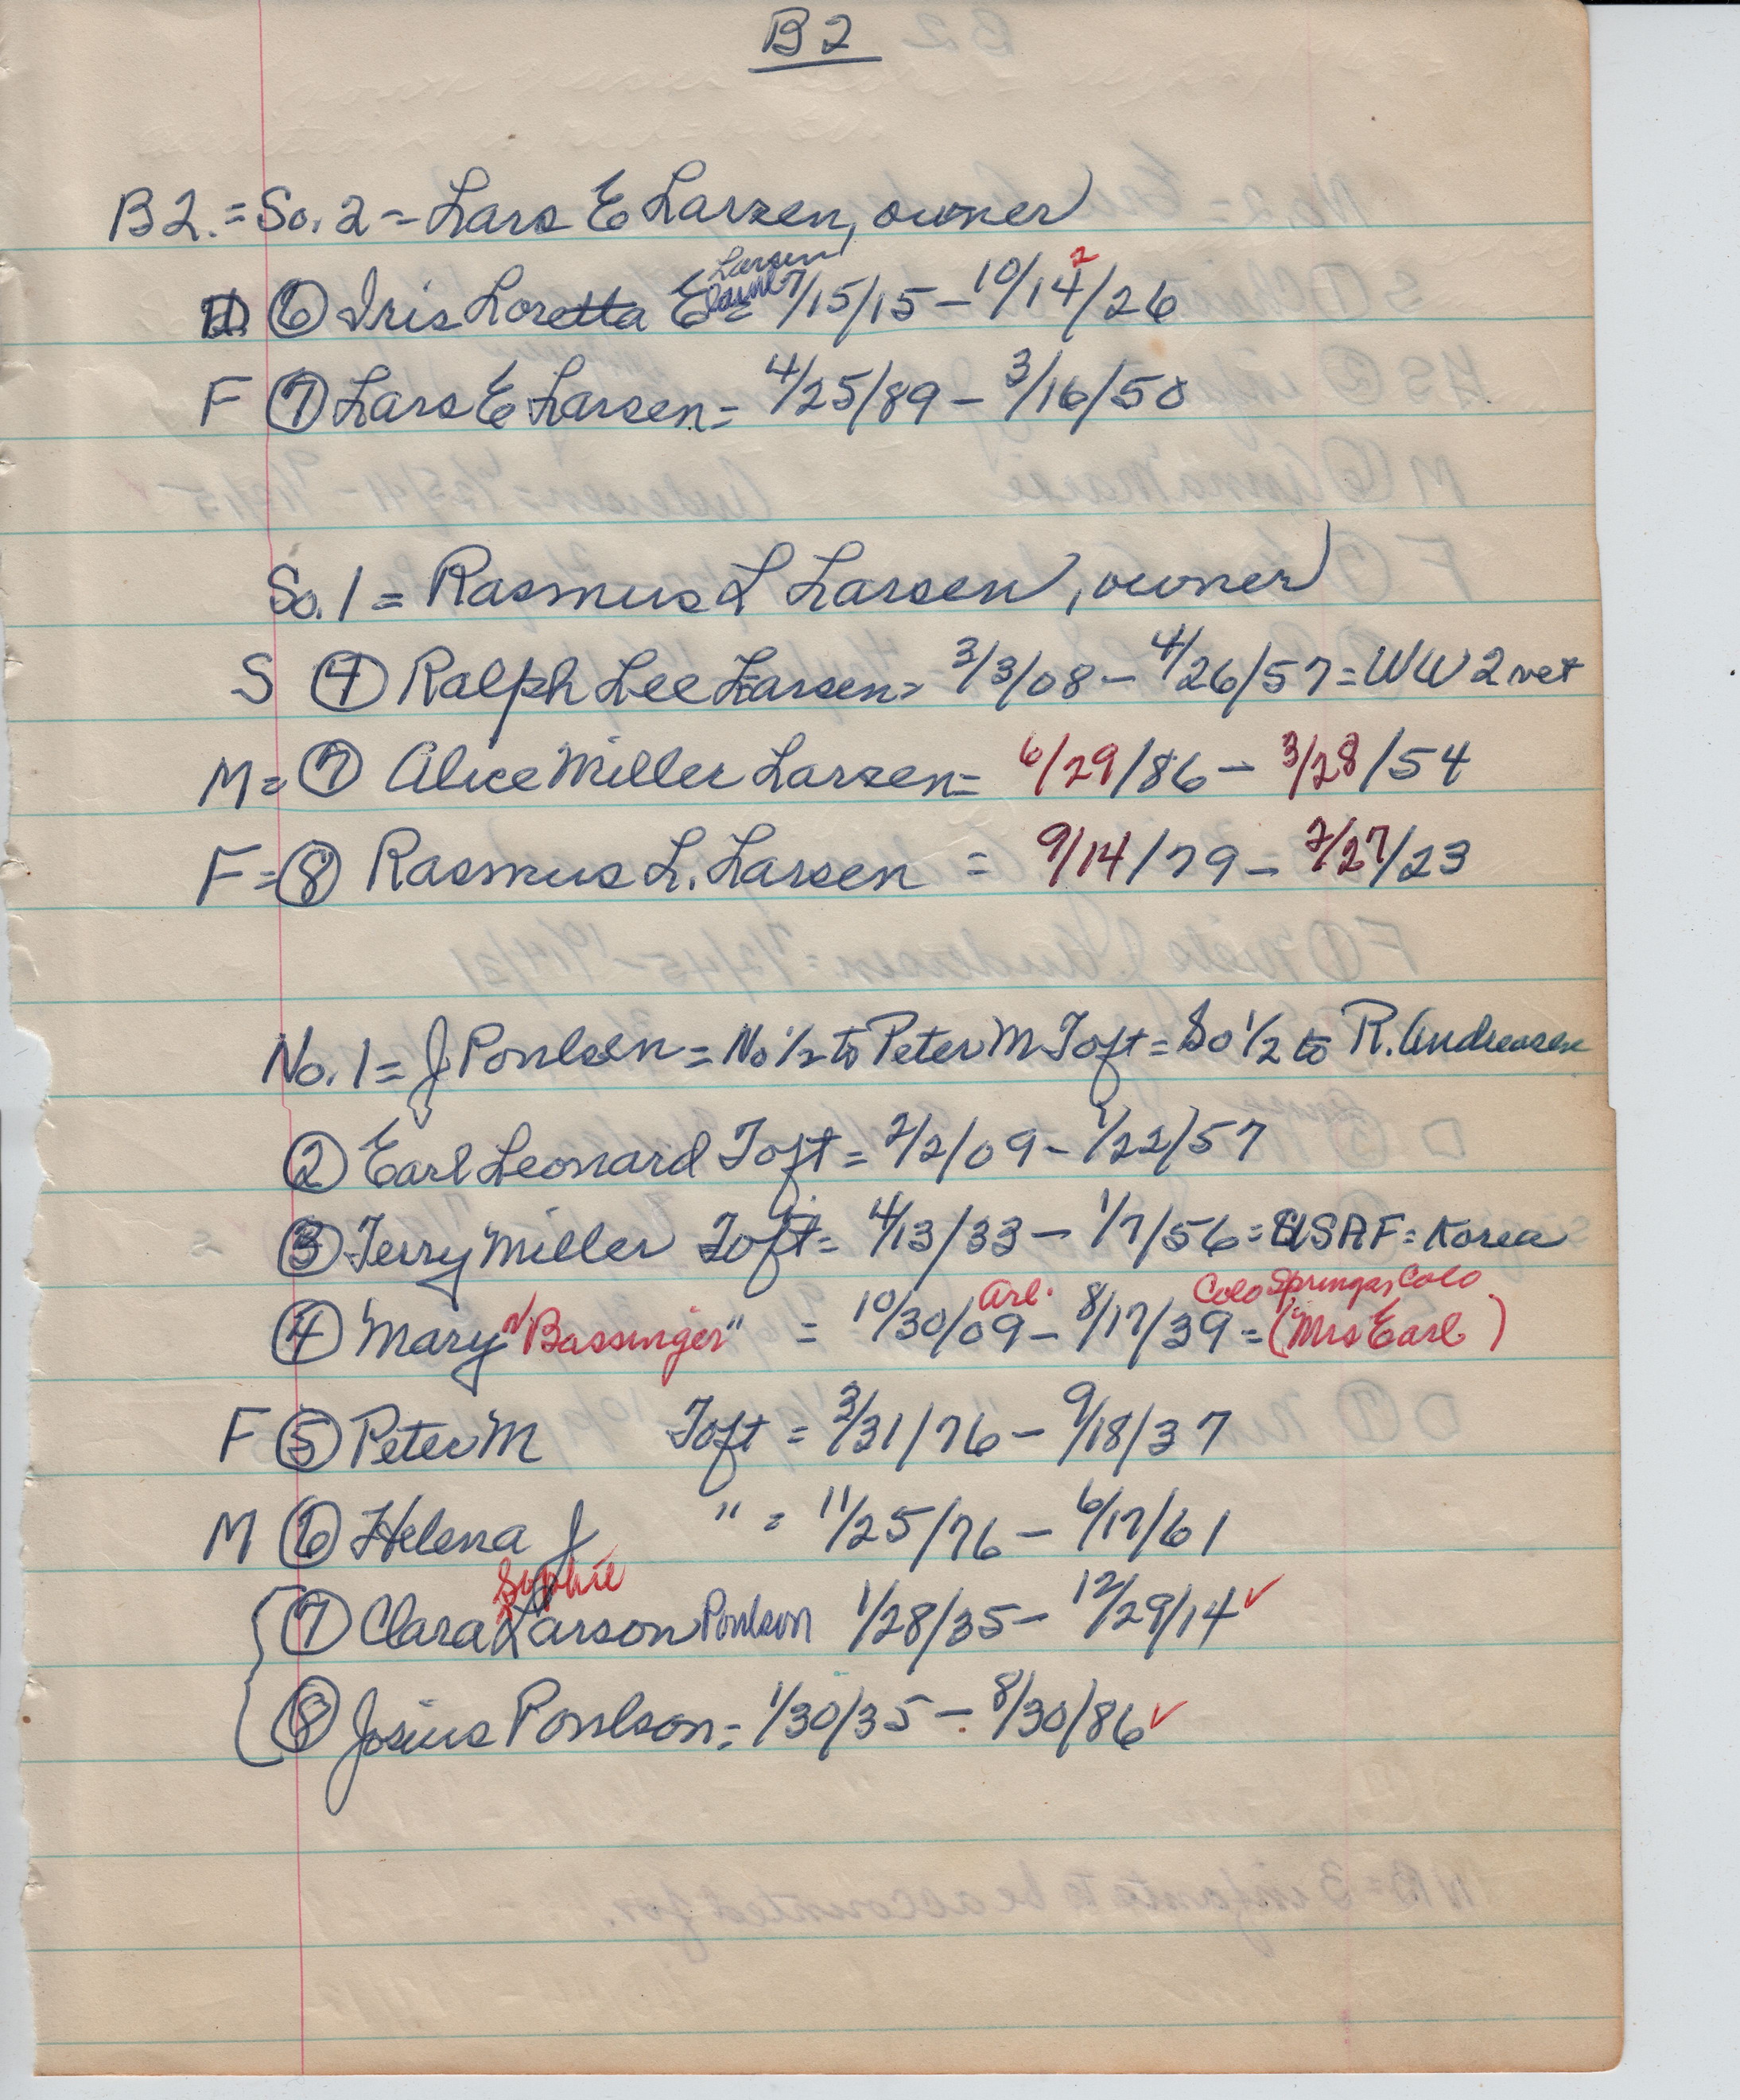 B2
B2. = So. 2 = Lars E Larsen, owner
D. ⑥ Iris Loretta Elaine Larsen 7/15/15 - 10/14/26 2
F ⑦ Lars E Larsen = 4/25/89 - 3/16/50
So. 1 = Rasmus L Larsen, owner
S ④ Ralph Lee Larsen = 3/3/08 - 4/26/57 = WW 2 vet
M = ⑦ Alice Miller Larsen = 6/29/86 - 3/28/54
F = ⑧ Rasmus L. Larsen = 9/14/79 - 7/27/23
No. 1 = J Poulsen = No 1/2 to Peter M Toft = So 1/2 to R. Andreasen
② Earl Leonard Toft = 2/2/09 - 1/22/57
③ Terry Miller Toft = 4/13/33 - 1/7/56 = USAF = Korea
Arl. Colo Springs, Colo
④ Mary "Bassinger" = 10/30/09 - 8/17/39 = (Mrs Earl)
F ⑤ Peter M Toft = 3/31/76 - 9/18/37
M ⑥ Helena J " = 11/25/76 - 6/17/61
Sophie
⑦ Clara Larson Poulson 1/28/35 - 12/29/14 ✓
⑧ Josius Poulson = 1/30/35 - 8/30/86 ✓